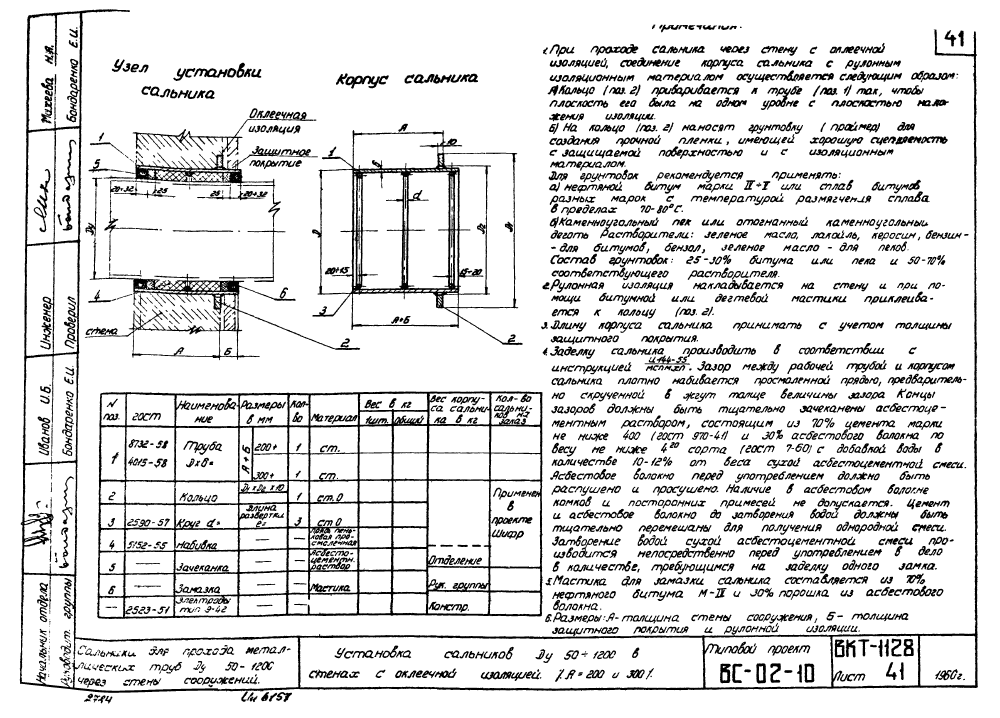 41
Примечания:
1. При проходе сальника через стену с оклеечной
изоляцией, соединение корпуса сальника с рулонным
изоляционным материалом осуществляется следующим образом:
А) Кольцо (поз. 2) приваривается к трубе (поз. 1) так, чтобы
плоскость его была на одном уровне с плоскостью нало-
жения изоляции.
Б) На кольцо (поз. 2) наносят грунтовку (праймер) для
создания прочной пленки, имеющей хорошую сцепляемость
с защищаемой поверхностью и с изоляционным
материалом.
Для грунтовок рекомендуется применять:
а) нефтяной битум марки IV÷V или сплав битумов
разных марок с температурой размягчения сплава
в пределах 70-80°С.
б) Каменноугольный пек или отогнанный каменноугольный
деготь. Растворители: зеленое масло, лакойль, керосин, бензин-
- для битумов, бензол, зеленое масло - для пеков.
Состав грунтовок: 25-30% битума или пека и 50-70%
соответствующего растворителя.
2. Рулонная изоляция накладывается на стену и при по-
мощи битумной или дегтевой мастики приклеива-
ется к кольцу (поз. 2).
3. Длину корпуса сальника принимать с учетом толщины
защитного покрытия.
4. Заделку сальника производить в соответствии с
инструкцией И144-55 МСПМХП. Зазор между рабочей трубой и корпусом
сальника плотно набивается просмоленной прядью, предваритель-
но скрученной в жгут толще величины зазора. Концы
зазоров должны быть тщательно зачеканены асбестоце-
ментным раствором, состоящим из 70% цемента марки
не ниже 400 (гост 970-41) и 30% асбестового волокна по
весу не ниже 4го сорта (гост 7-60) с добавкой воды в
количестве 10-12% от веса сухой асбестоцементной смеси.
Асбестовое волокно перед употреблением должно быть
распушено и просушено. Наличие в асбестовом волокне
комков и посторонних примесей не допускается. Цемент
и асбестовое волокно до затворения водой должны быть
тщательно перемешаны для получения однородной смеси.
Затворение водой сухой асбестоцементной смеси про-
изводится непосредственно перед употреблением в дело
в количестве, требующимся на заделку одного замка.
5. Мастика для замазки сальника составляется из 70%
нефтяного битума М-IV и 30% порошка из асбестового
волокна.
6. Размеры: А - толщина стены сооружения, Б - толщина
защитного покрытия и рулонной изоляции.
Узел установки
сальника
Оклеечная
изоляция
Защитное
покрытие
1
5
20÷32
25
25
20÷32
Dу
4
6
стена
2
А
Б
Корпус сальника
А
10
1
d
D
20÷15
15-20
3
А+Б
2
N поз.
гост
Наименова-
ние
Размеры
в мм
Кол-
во
Материал
Вес в кг
1шт.
общий
Вес корпу-
са сальни-
ка в кг
Кол-во
сальни-
ков на
заказ
1
8732-58
4015-58
Труба
Dхδ=
А+Б
200+
1
ст.
300+
1
ст.
2
Кольцо
D₁хD₂х10
1
ст. 0
Применен
в
проекте
Шифр
3
2590-57
Круг d=
длина
развертки
ℓ=
3
ст. 0
4
5152-55
Набивка
прядь пень-
ковая про-
смоленная
5
Зачеканка
Асбесто-
цементн.
раствор
Отделение
6
Замазка
Мастика
Рук. группы
2523-51
Электроды
тип Э-42
Констр.
Сальники для прохода метал-
лических труб Dу 50-1200
через стены сооружений.
Установка сальников Dу 50÷1200 в
стенах с оклеечной изоляцией. /А=200 и 300/.
Типовой проект
ВС-02-10
ВКТ-1128
Лист 41
1960г.
2784
Ин 6157
Михеева Н.Я.
Бондаренко Е.И.
Инженер
Проверил
Иванов И.Б.
Бондаренко Е.И.
Начальник отдела
Руководит. группы